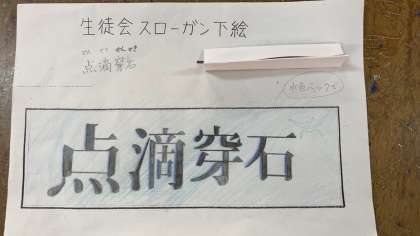 生徒会スローガン下絵
てん てき せんせき
点滴穿石
水色バックで
点滴穿石